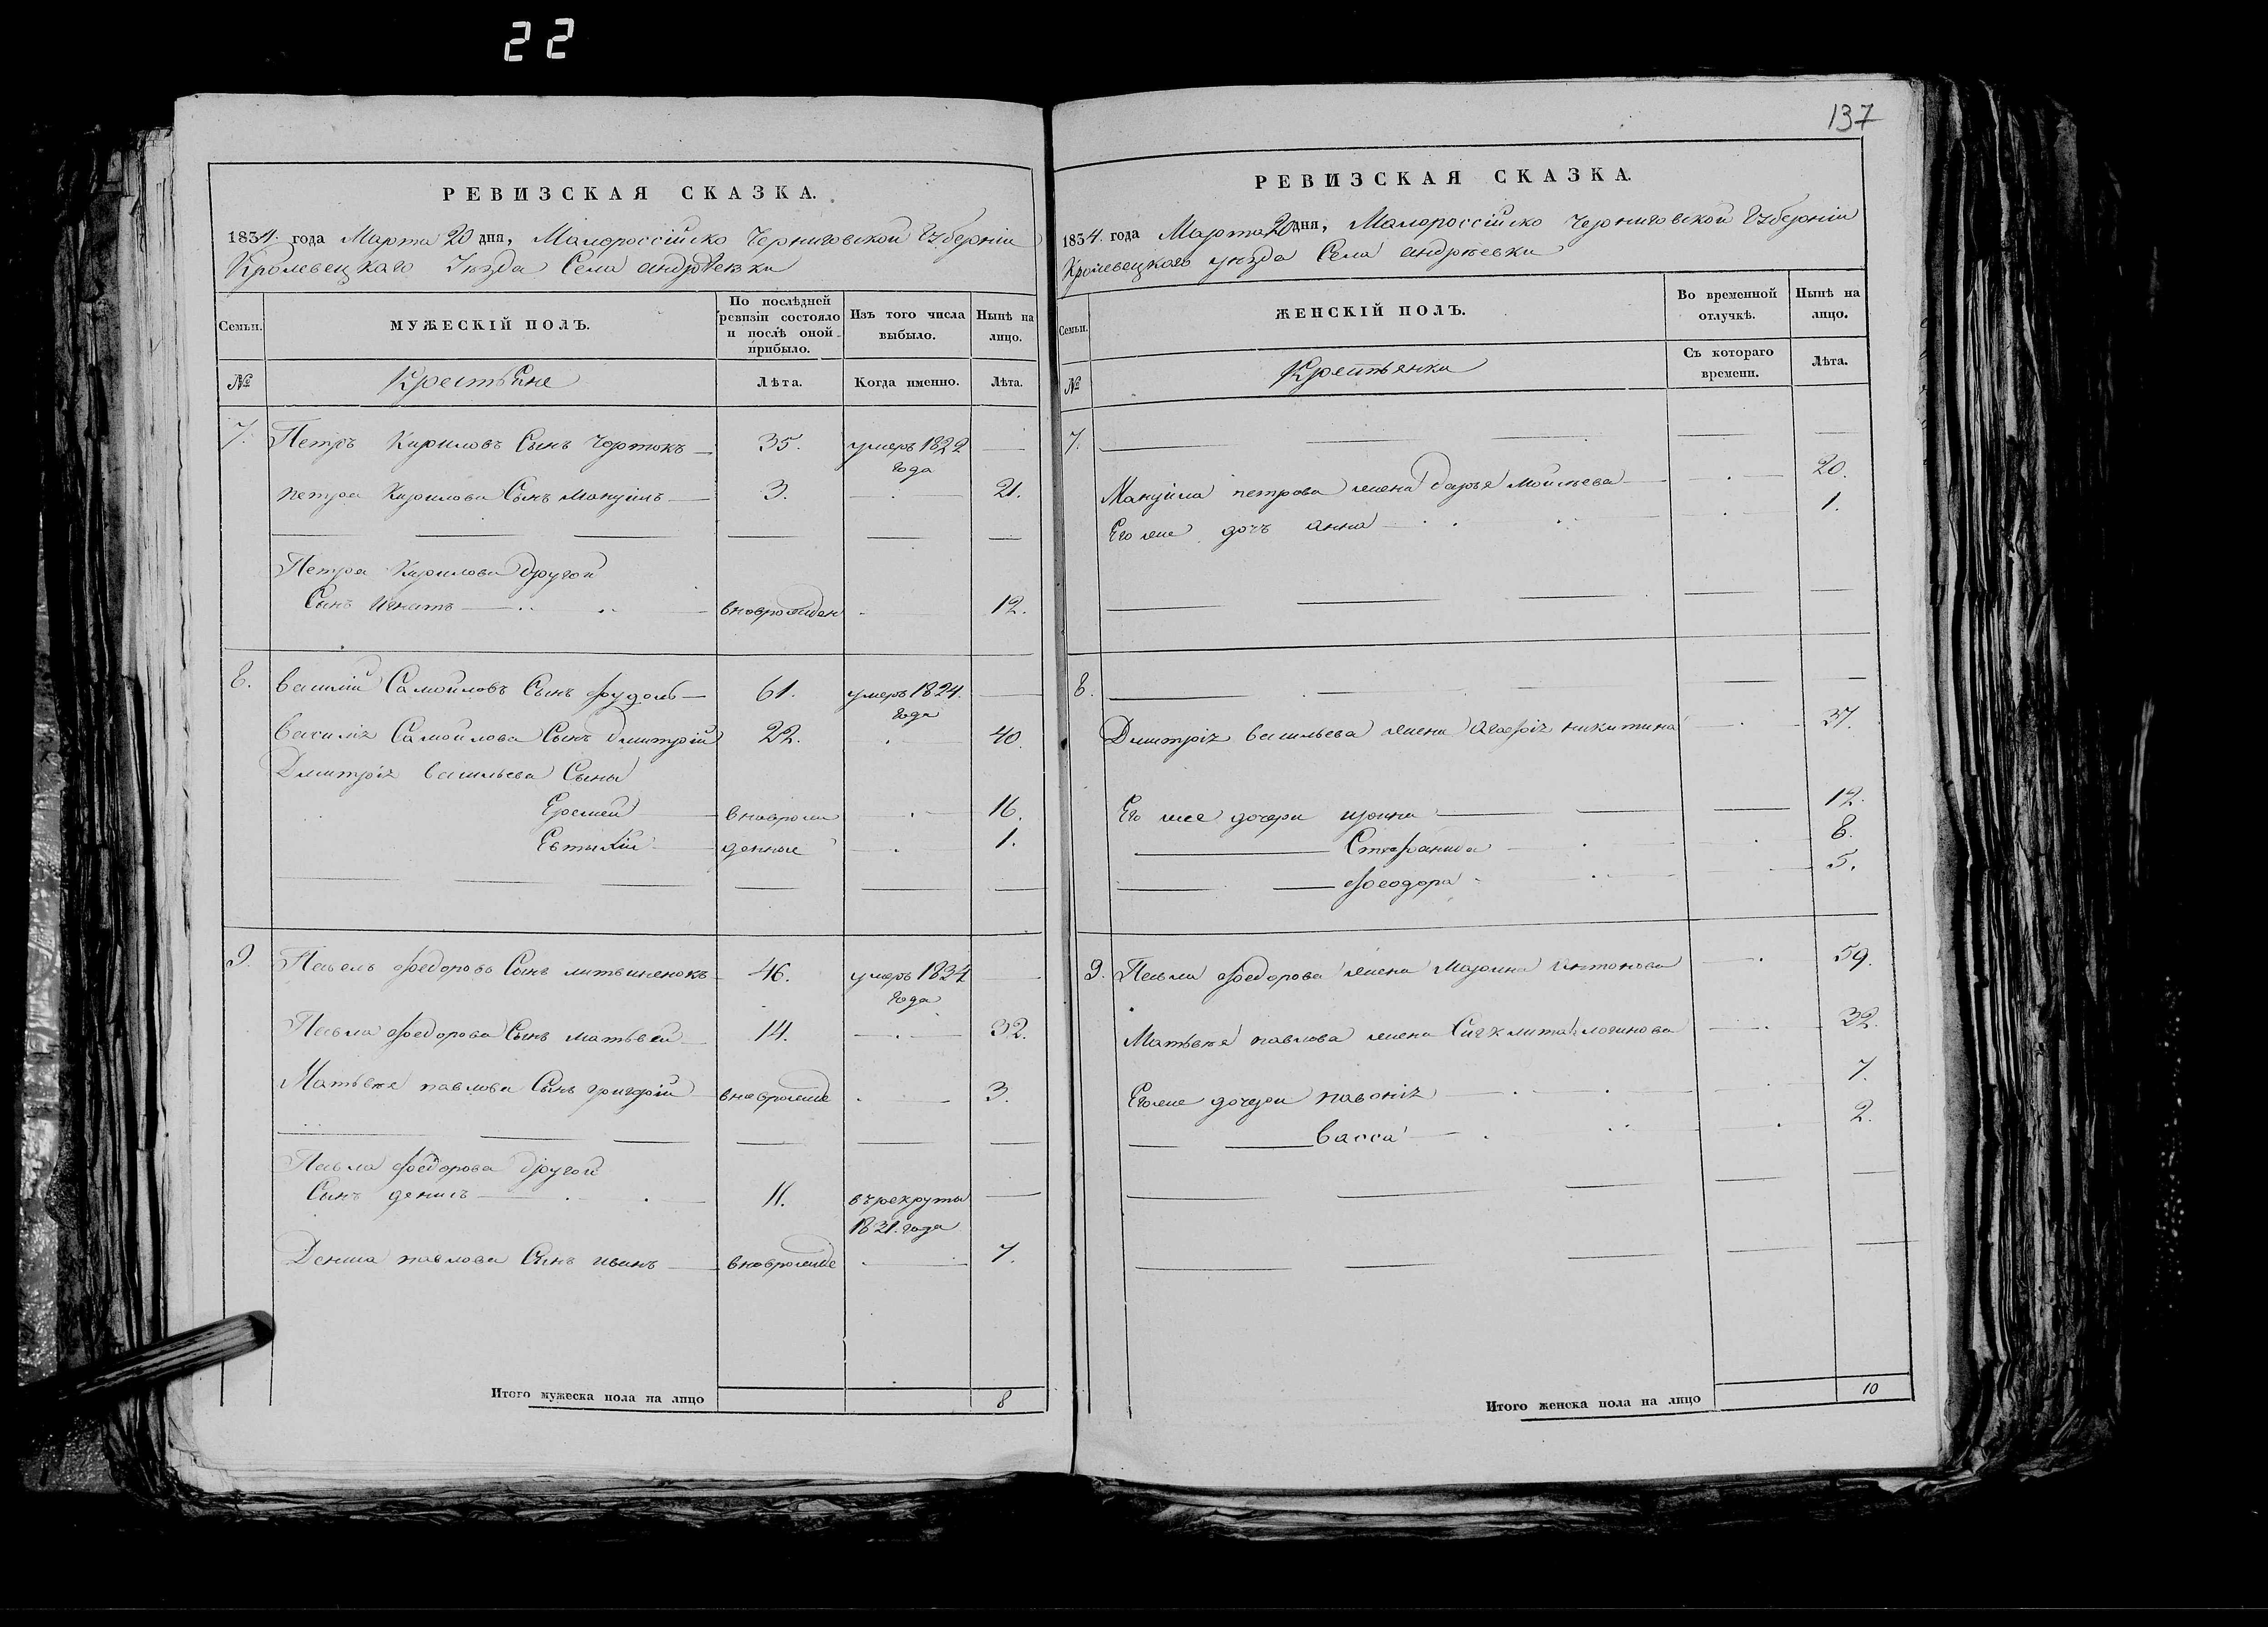 22
РЕВИЗСКАЯ СКАЗКА.
1834. года Марта 20 дня, Малороссійско Черниговской Губерніи
Кролевецкаго Уѣзда Села андрѣевки
Семьи.
МУЖЕСКІЙ ПОЛЪ.
По послѣдней ревизіи состояло и послѣ оной прибыло.
Изъ того числа выбыло.
Нынѣ на лицо.
№
Крестьяне
Лѣта.
Когда именно.
Лѣта.
7. Петръ Кириловъ Сынъ Чортокъ 35. умеръ 1822 года
петра Кирилова Сынъ мануилъ 3. 21.
Петра Кирилова другой
Сынъ Игнатъ вноврожден 12.
8. василій Самойловъ Сынъ 61. умеръ 1824. года
василія Самойлова Сынъ дмитрій 22. 40.
Дмитрія васильева Сыны
Еремей вноврож 16.
Евтихій денные 1.
9. Павелъ Федоровъ Сынъ литвиненокъ 46. умеръ 1834 года
Павла Федорова Сынъ матвей 14. 32.
Матвѣя павлова Сынъ григорій вноврожде 3.
Павла Федорова другой
Сынъ денисъ 11. въ рекруты
1831. года
Дениса павлова Сынъ иванъ вноврожде 7.
Итого мужеска пола на лицо 8
137
РЕВИЗСКАЯ СКАЗКА.
1834. года Марта 20 дня, Малороссійско Черниговской Губерніи
Кролевецкаго уѣзда Села андрѣевки
Семьи.
ЖЕНСКІЙ ПОЛЪ.
Во временной отлучкѣ.
Нынѣ на лицо.
№
Крестьянки
Съ котораго времени.
Лѣта.
7.
Мануила петрова жена Дарья моисѣева 20.
Его же дочь анна 1.
8.
Дмитрія васильева жена Агафія никитина 37.
Его же дочери ирина 12.
Стефанида 8.
Феодора 5.
9. Павла Федорова жена Марина Антонова 59.
Матвѣя павлова жена логинова 32.
Его же дочери 7.
васса 2.
Итого женска пола на лицо 10